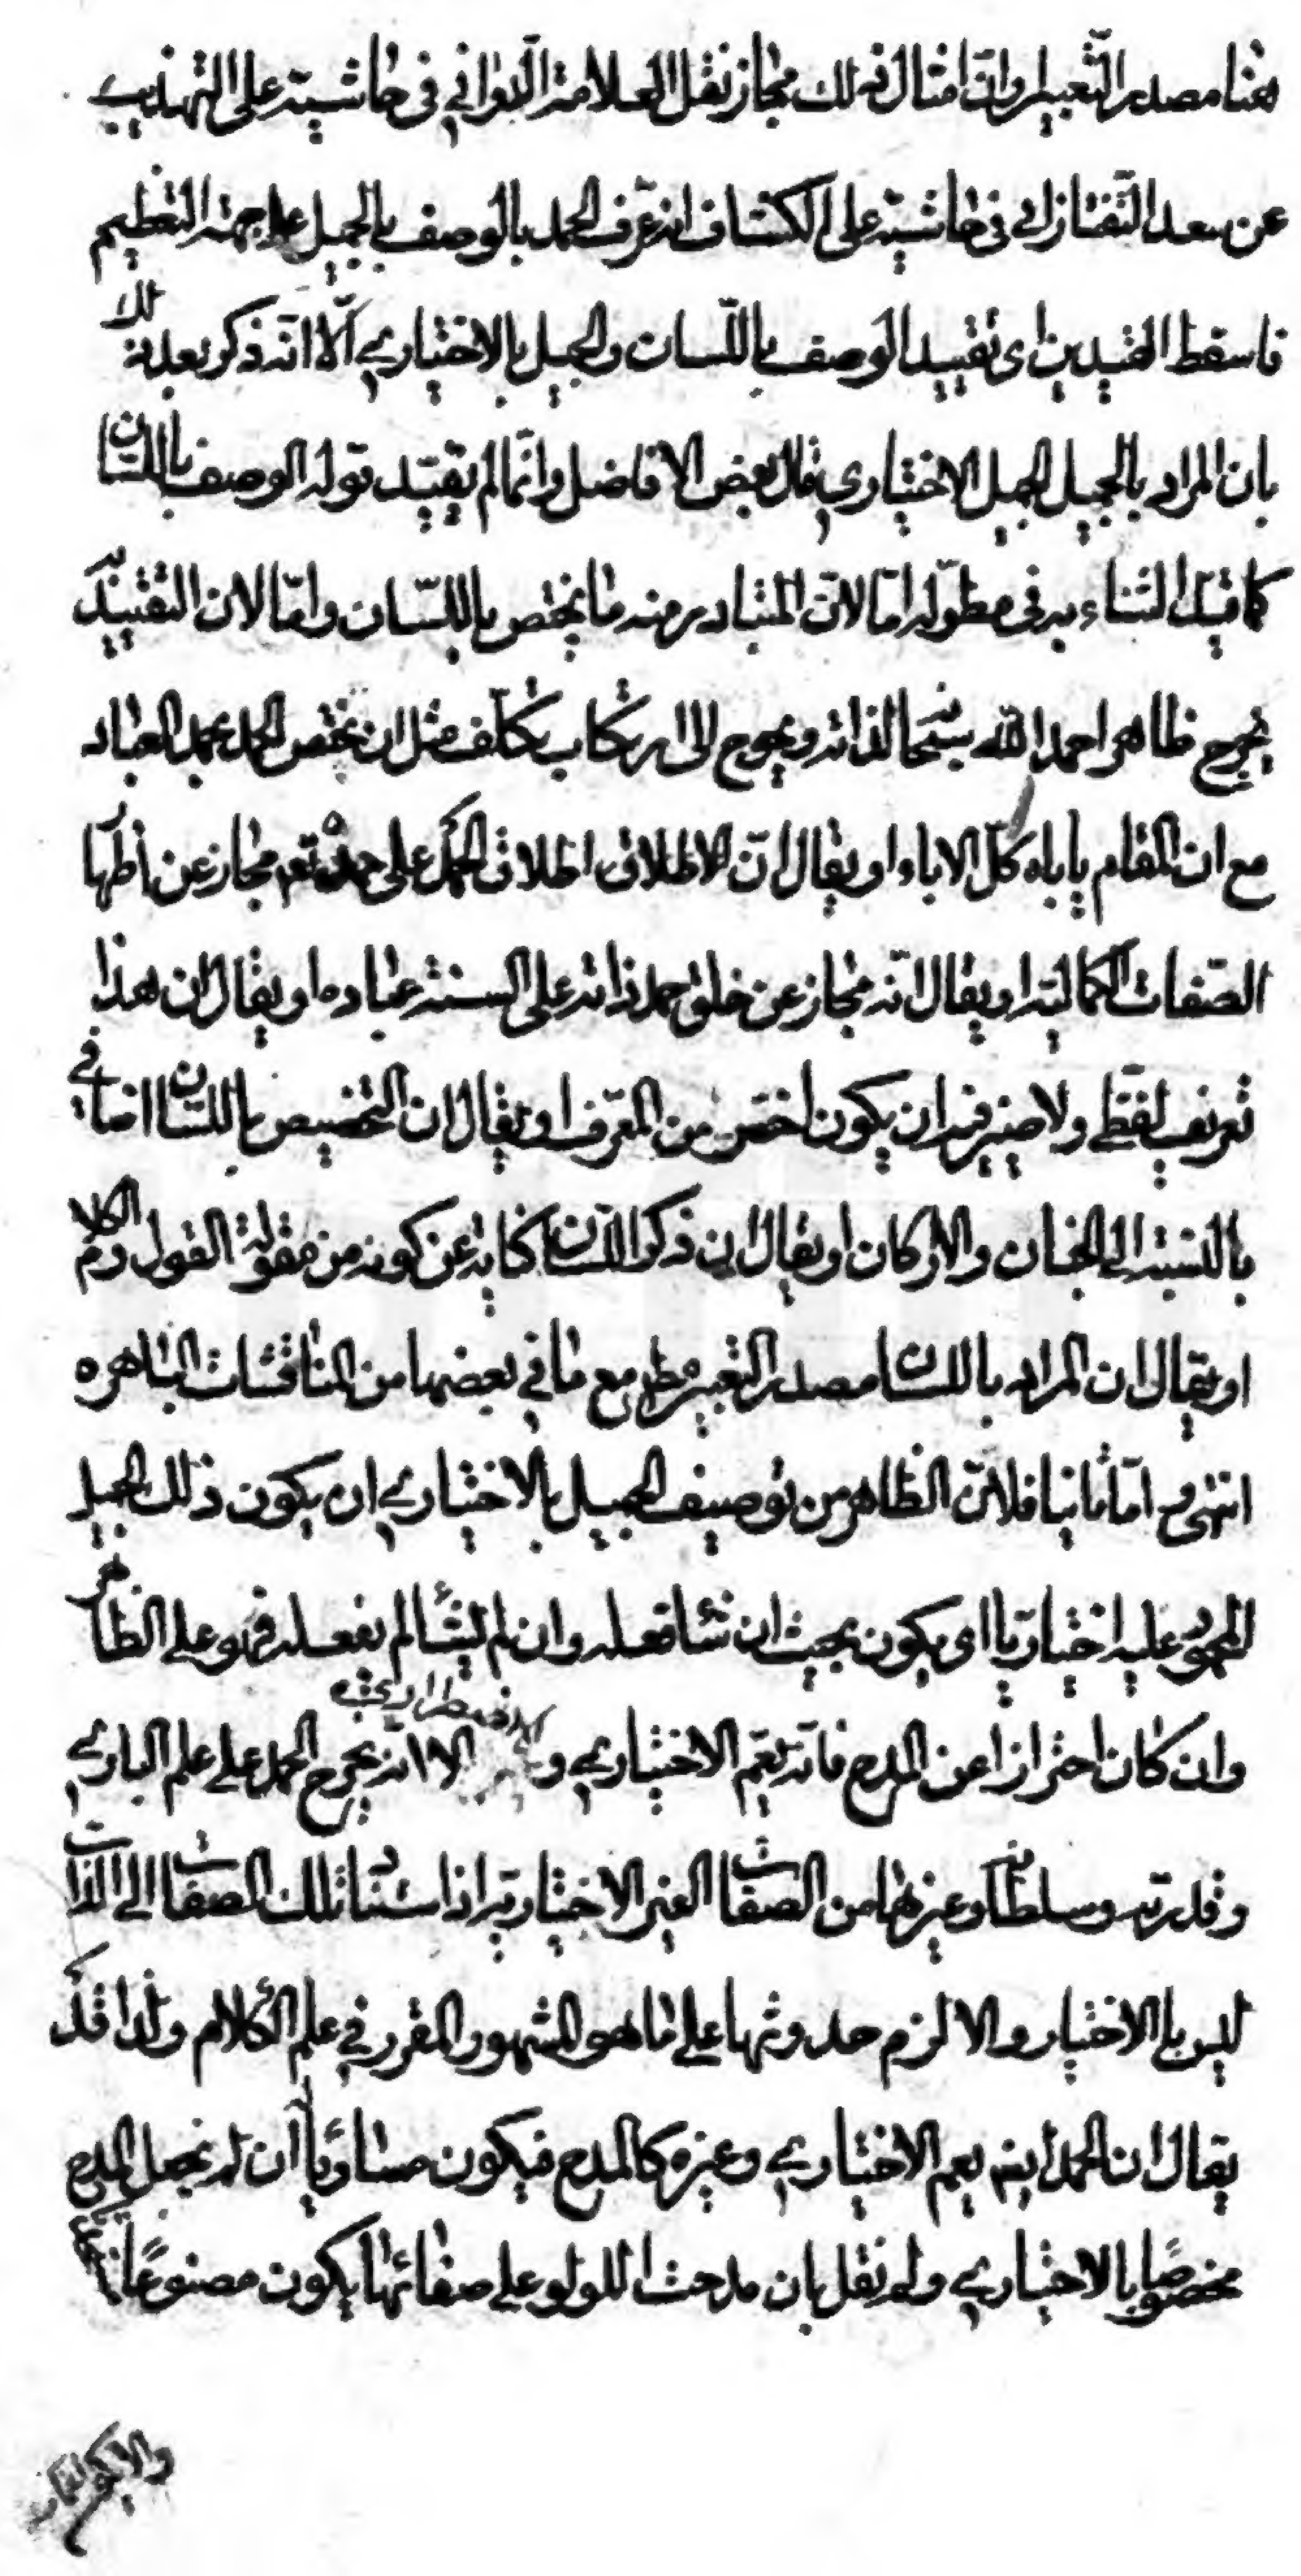 هنا مصدر التعبير وان امثال ذلك مجاز نقل العلامة الدواني في حاشيته على التهذيب
عن سعد التفتازاني في حاشيته على الكشاف انه عرف الحمد بالوصف بالجميل على جهة التعظيم
فاسقط القيدين اى تقييد الوصف باللسان والجميل بالاختياري الا انه ذكر بعد ذلك
بان المراد بالجميل الجميل الاختياري قال بعض الافاضل وانما لم يقيد قوله الوصف باللسان
كما قيد الثناء به في مطوله امّا لانّ المتبادر منه ما يختص باللسان وامّا لان التقييد به
يخرج ظاهرا حمد الله سبحانه لذاته ويحوج الى ارتكاب تكلف مثل ان يختص الحمد بحمد العباد
مع ان المقام ياباه كلّ الاباء او يقال انّ الاطلاق اطلاق الحمد على حمده تعم مجاز عن اظهار
الصفات الكمالية او يقال انّه مجاز عن خلق حمد ذاته على السنة عباده او يقال ان هذا
تعريف لفظي ولا ضير فيه ان يكون اخص من المعرّف او يقال ان التخصيص باللسان اضافي
بالنسبة الى الجنان والاركان او يقال ان ذكر اللسان كناية عن كونه من مقولة القول والكلام
او يقال ان المراد باللسان مصدر التعبير مطلقا مع ما في بعضها من المناقشات الظاهره
انتهى و امّا ثانيا فلانّ الظاهر من توصيف الجميل بالاختياري ان يكون ذلك الجميل
المحمود عليه اختياريّا اى يكون بحيث ان شاء فعله وان لم يشأ لم يفعله فهو على الظاهر
وان كان احترازا عن المدح فانّه يعمّ الاختياري و الاضطراري الا انه يخرج الحمد على علم الباري
وقدرته وسلطانه وغيرها من الصفات الغير الاختيارية اذ استناد تلك الصفات الى الذات
ليس بالاختيار والا لزم حدوثها على ما هو المشهور المقرر في علم الكلام ولذا قد
يقال ان الحمد ايضا يعم الاختياري وغيره كالمدح فيكون مساويا ان لم نجعل المدح
مخصوصا بالاختياري ولم نقل بان مدحت اللولو على صفائها يكون مصنوعًا